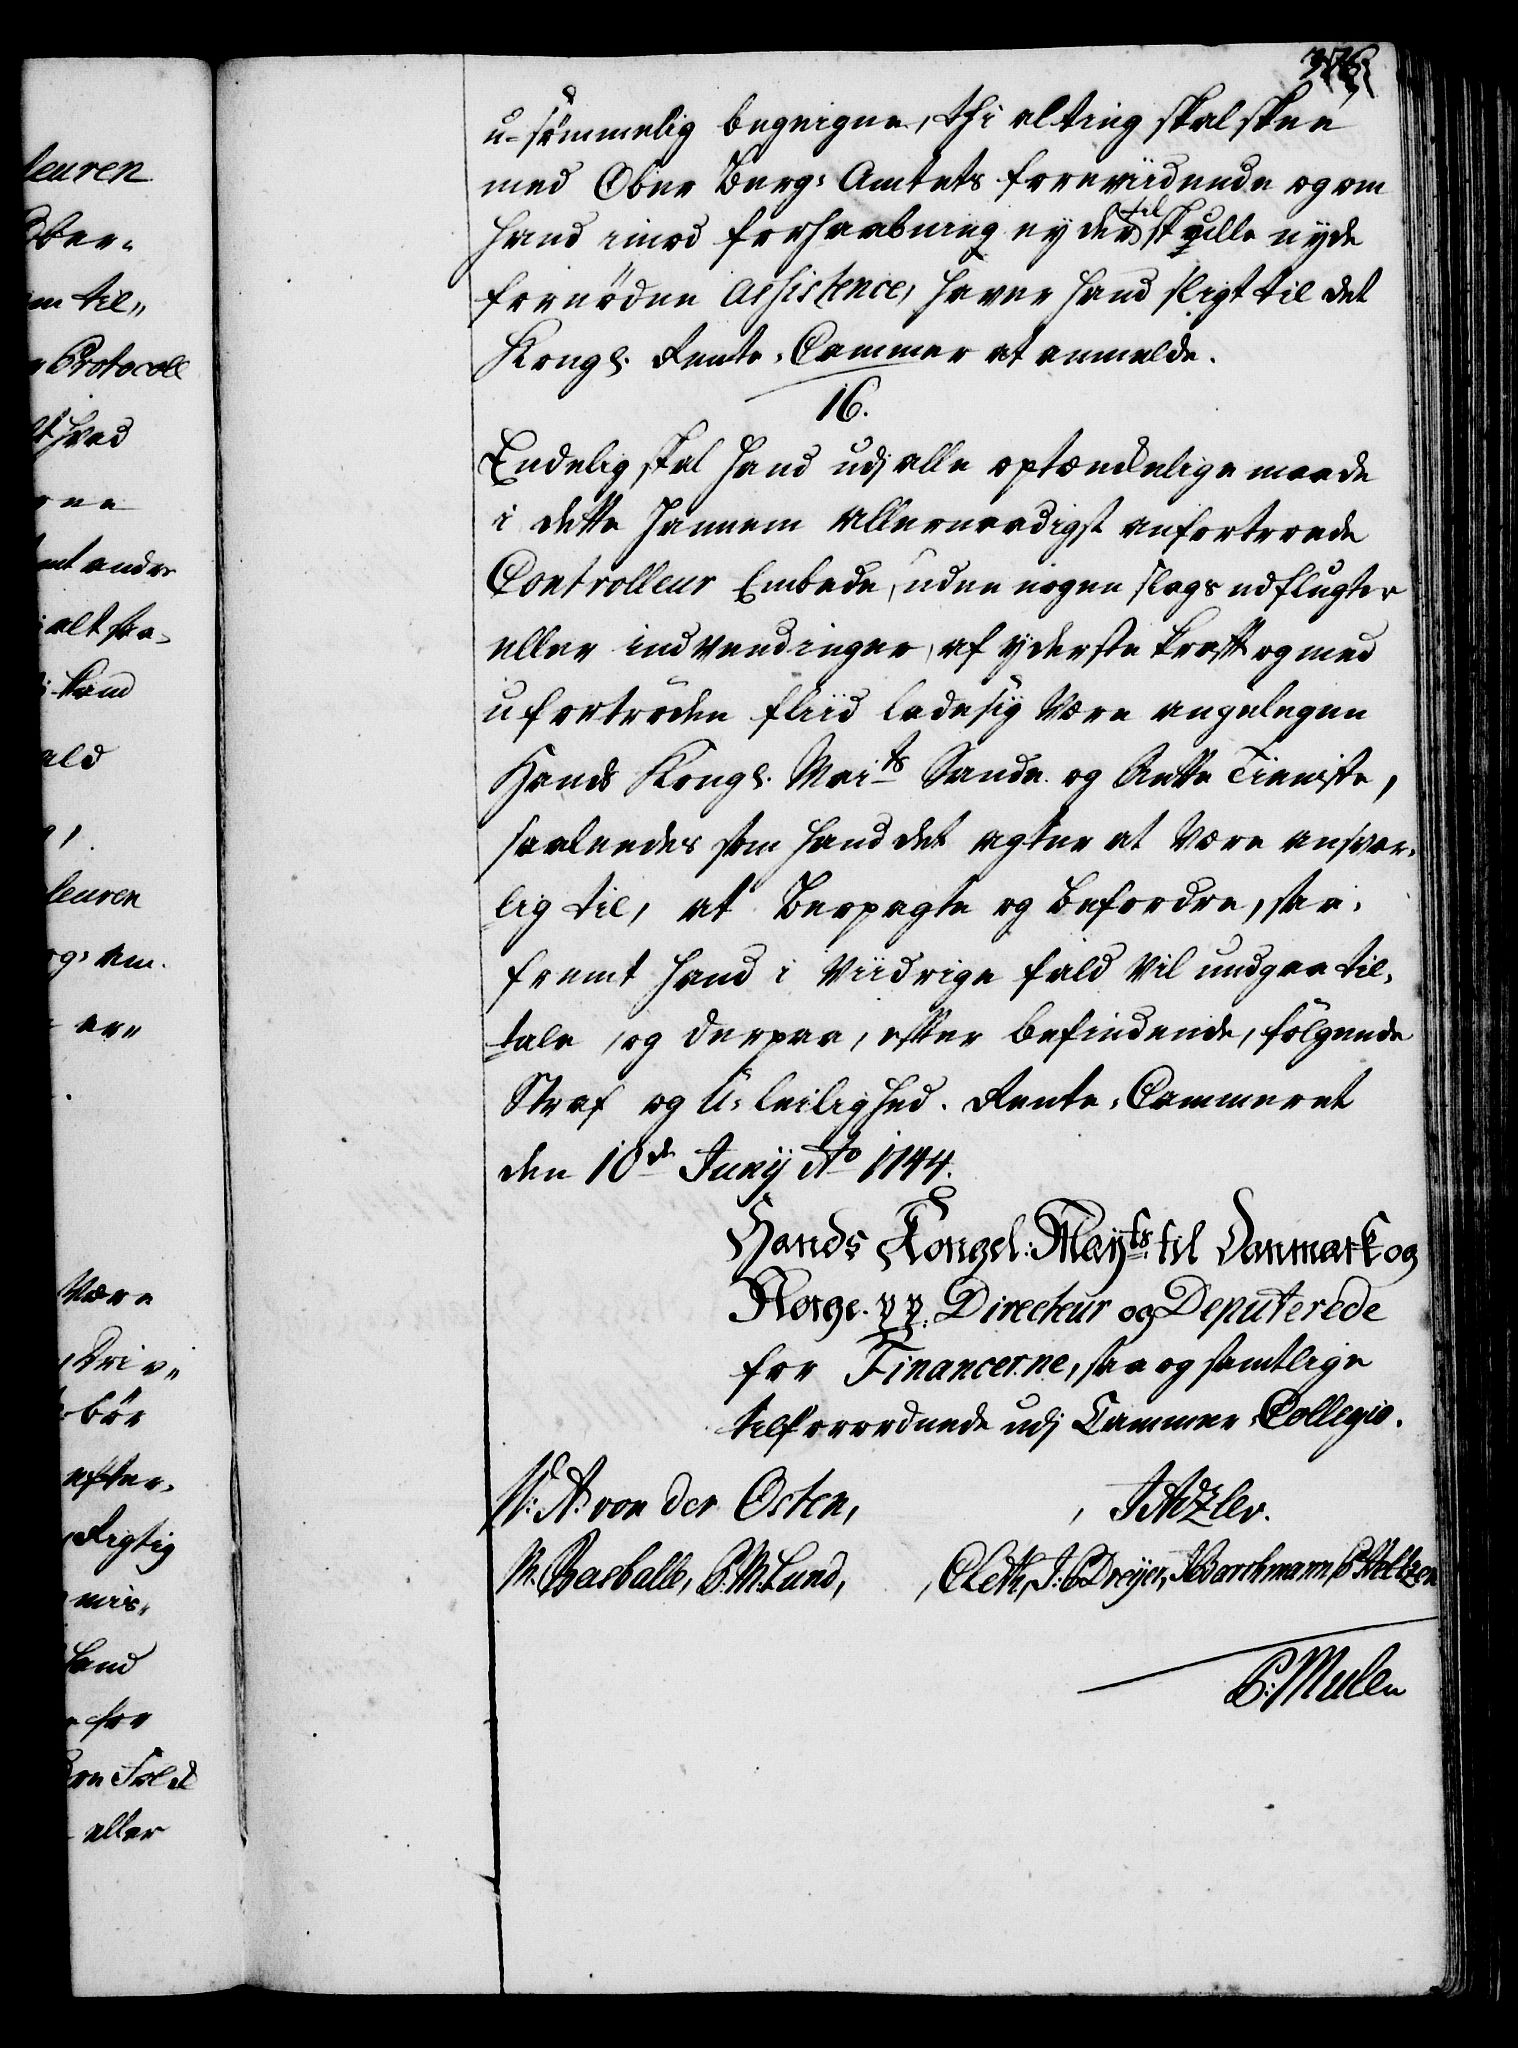 376.
u-sömmelig begeigne, thi alting skal skee
med Ober Berg-Amtets forevidende og om
hand imod forhaabning ey der til skulle nyde
fornödne assistence, haver hand sligt til det
Kongl. Rente-Cammer at anmelde.
16.
Endelig skal hand udj alle optænkelige maade
i dette hannem allernaadigst anfortroede
Controlleur Embede, uden nogen slags udflugter
eller indvendinger, af yderste kraft og med
ufortröden fliid lade sig være angelegen
Hands Kongl. Mai ts Sande og Rette Tieniste,
saaleedes som hand det agter at være ansvar-
lig til, at Berpagte og Befordre, saa-
fremt hand i viidrige fald vil undgaae til-
tale, og derpaa, efter befindende, fölgende
Straf og U-leilighed. Rente-Cammeret
den 10 de Junij Ao 1744.
Hands Kongel: May ts til Danmark og
Norge. pp. Directeur og Deputerede
for Financerne, saa og samtlige
tilforordnede udj Cammer-Collegio.
W: A: von der Osten,
M. Basballe, P. M. Lund,
C Leth, J: C Dreyer, J Barchmann, P Holtzen
P: Mule
leuren
Ober-
til„
Protocoll
hvad
andr
alt saa-
hand
ald
leuren
være
bör
efter-
Rigtig
hand
for
eller